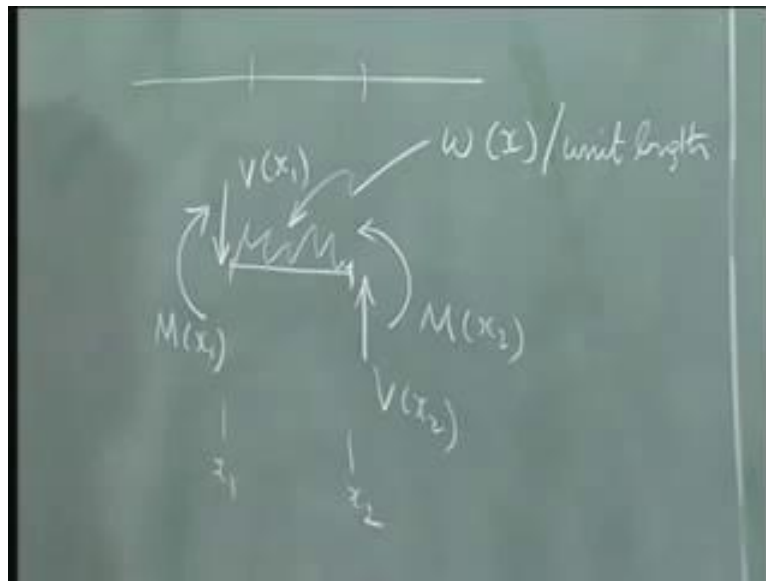 w(x)/unit length
V(x₁)
M(x₁)
M(x₂)
V(x₂)
x₁
x₂